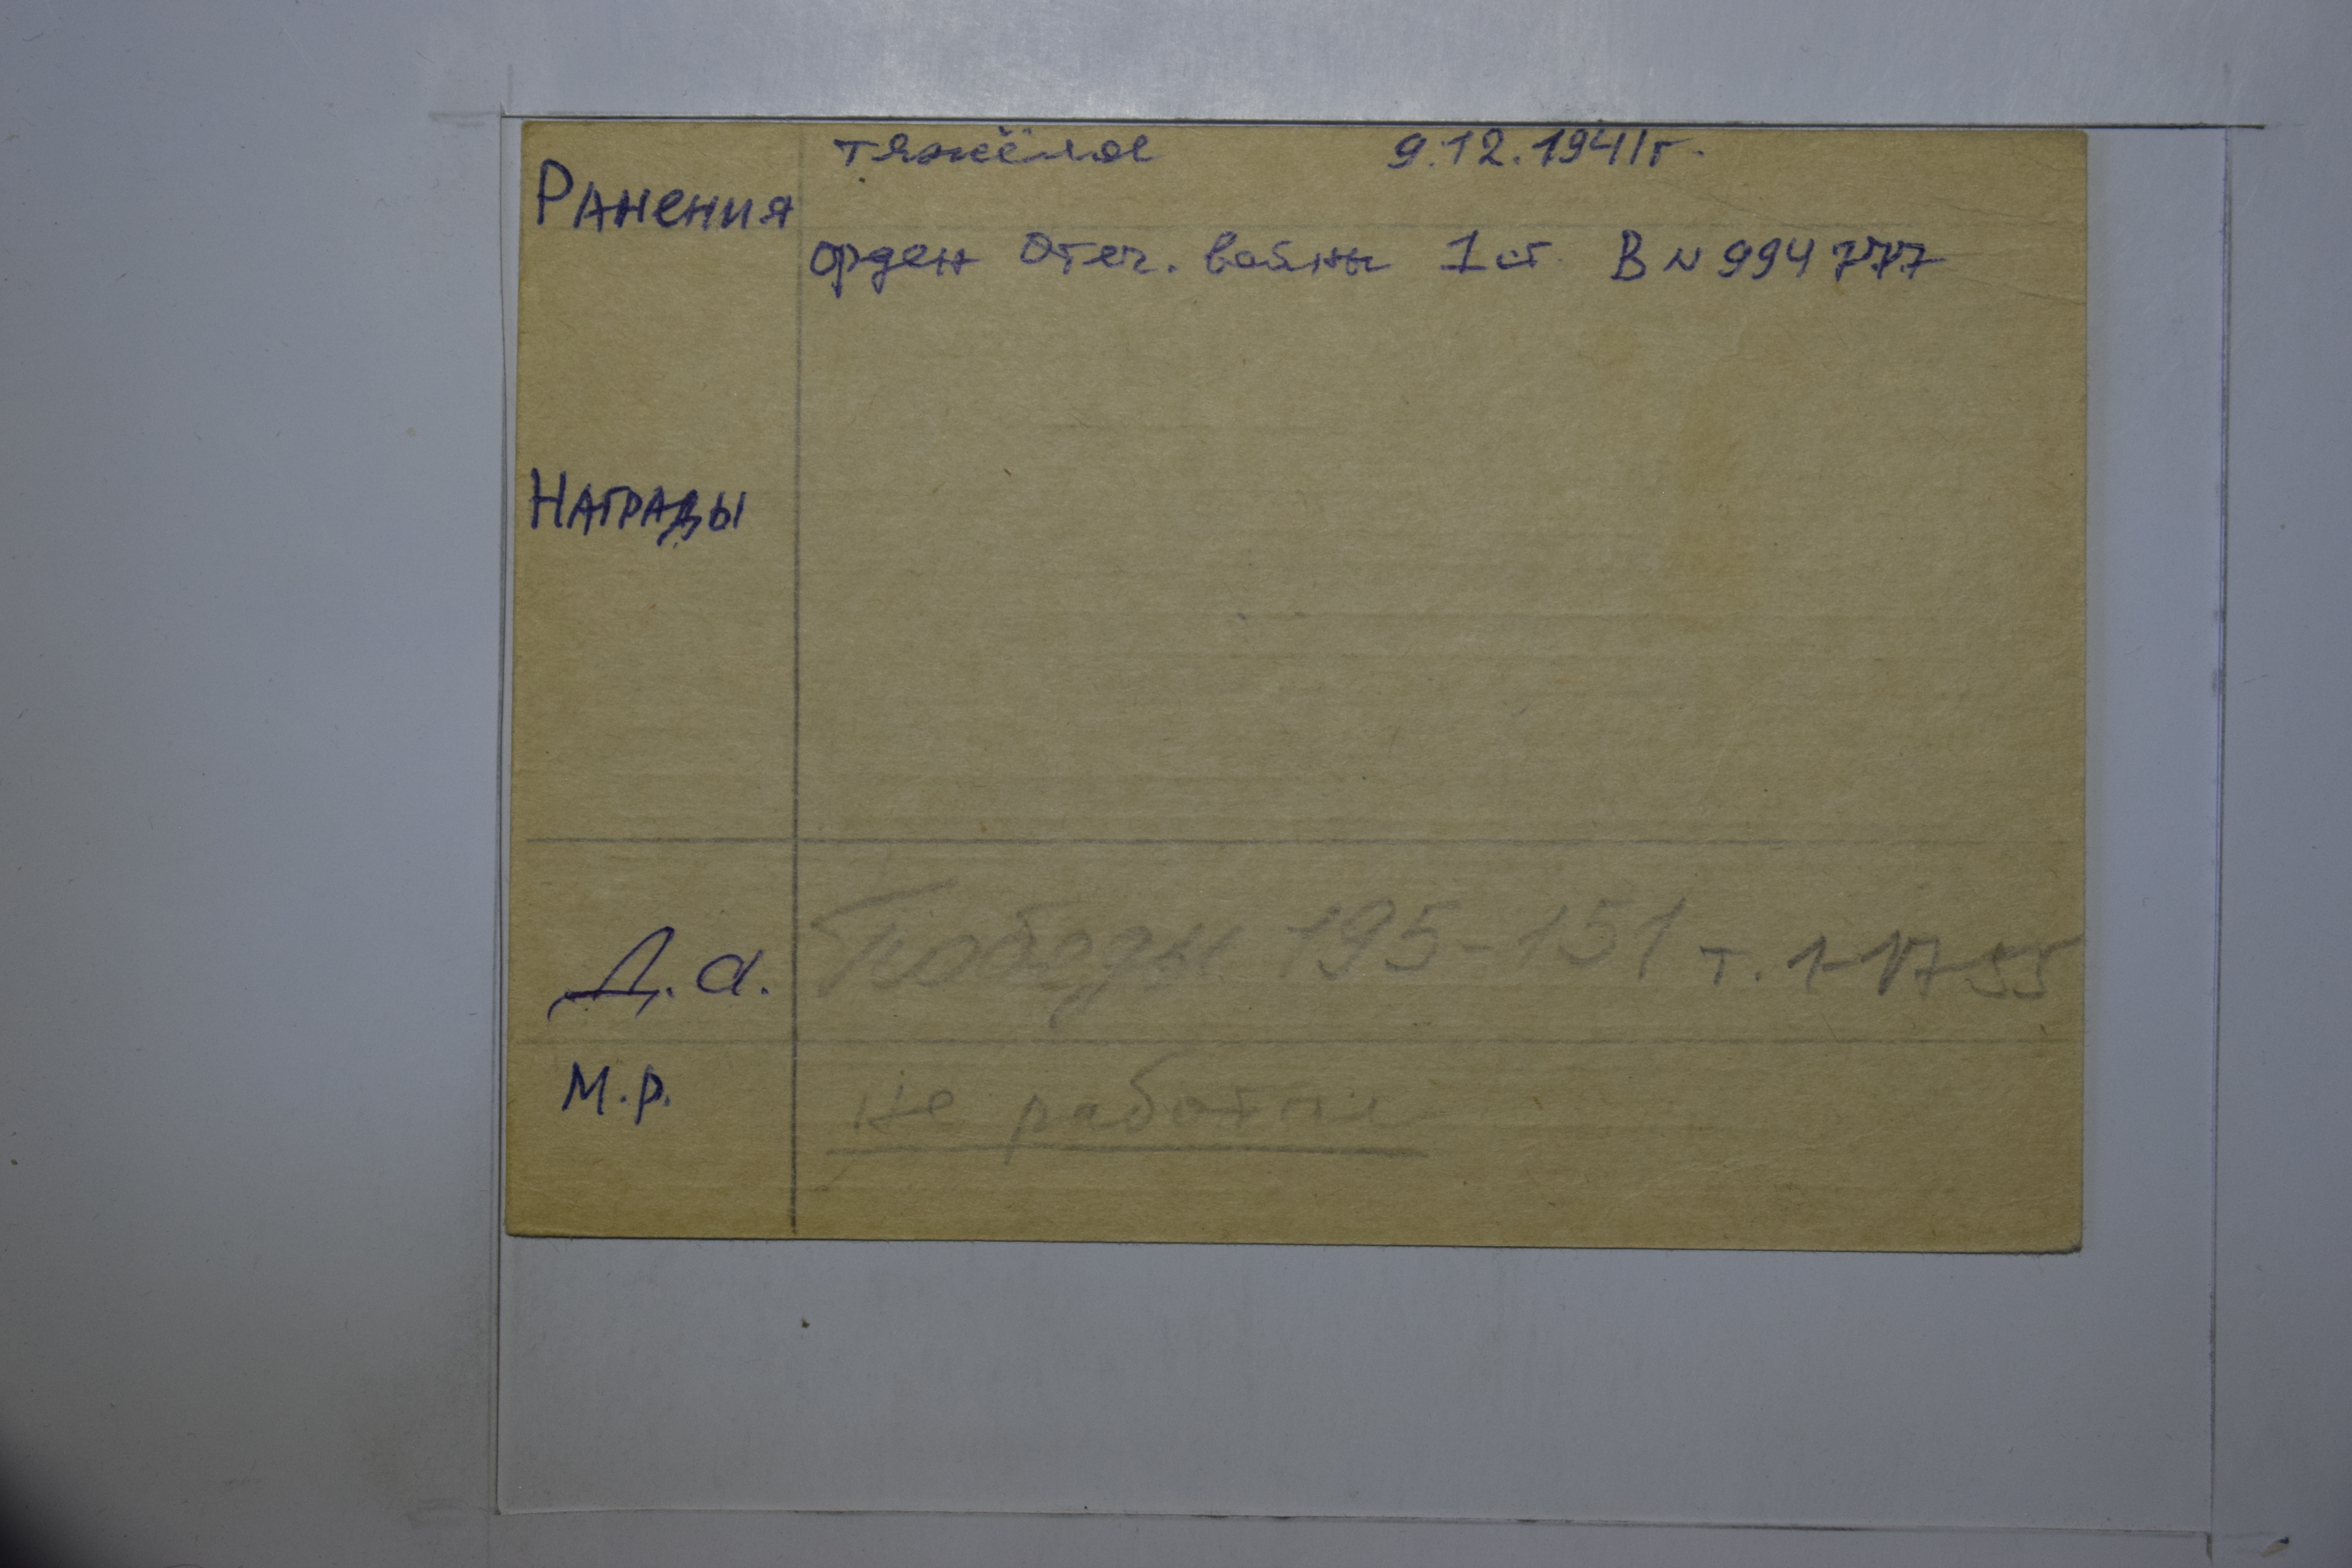 тяжёлое 9.12.1941г.
Ранения
орден Отеч. войны 1 ст. В № 994777
Награды
Д.а. Победы 195-151 т. 1-17-55
М.р. не работает